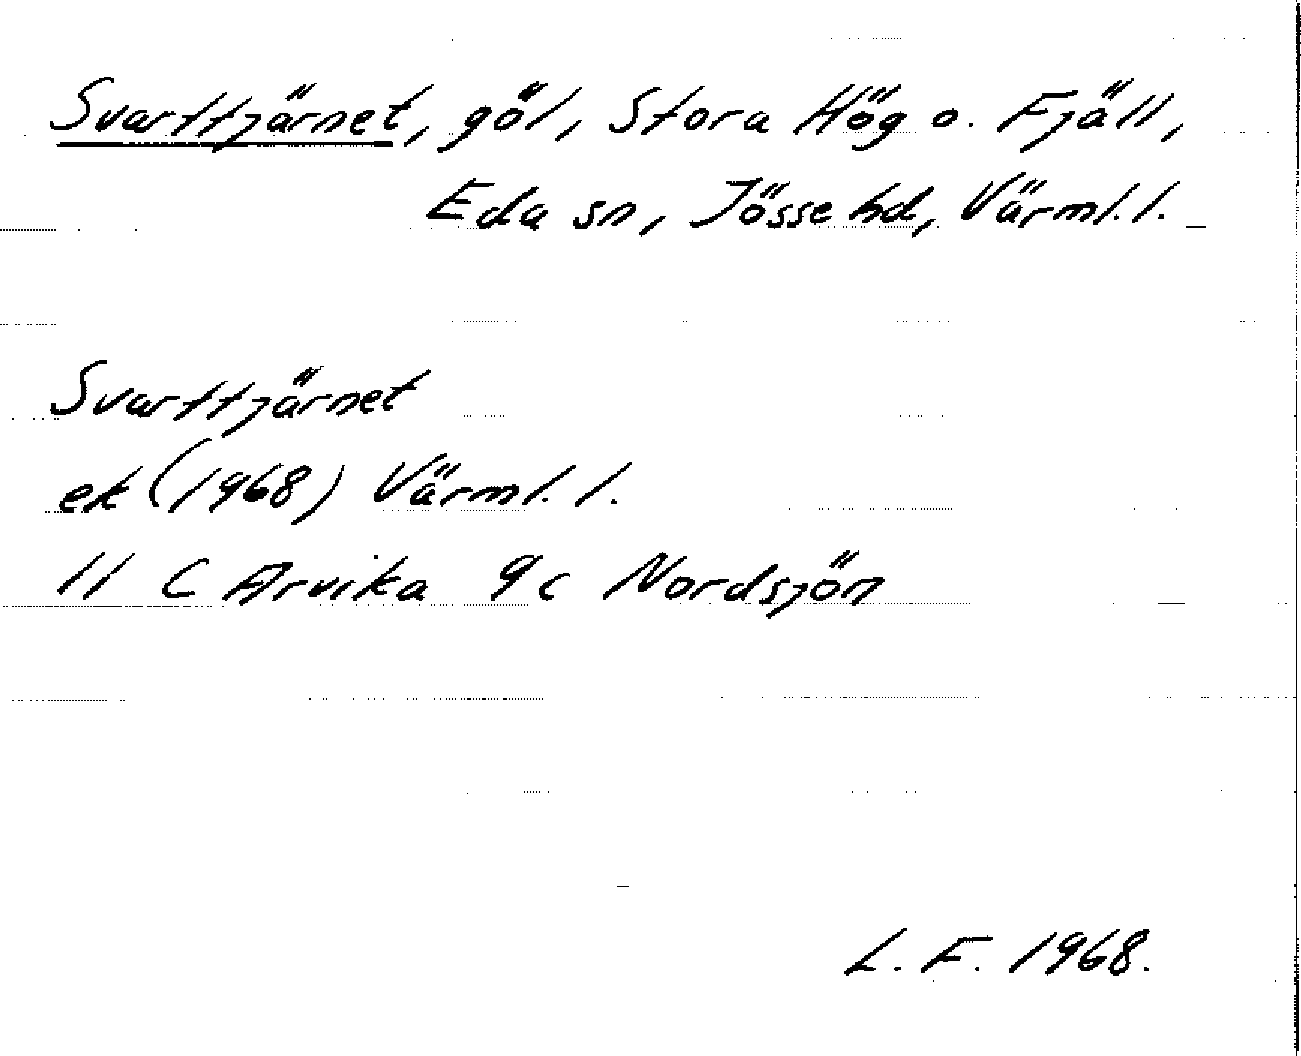 Svarttjärnet, göl, Stora Hög o. Fjäll,
Eda sn, Jösse hd, Värml. l.
Svarttjärnet
ek (1968) Värml. l.
11 C Arvika 9c Nordsjön
L. F. 1968.